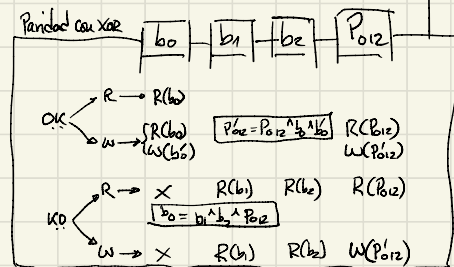 Paridad con XOR
b0 b1 b2 P012
R → R(b0)
OK
W → {R(b0) P'012 = P012 ^ b0 ^ b'0 R(P012)
W(b'0) W(P'012)
R → X R(b1) R(b2) R(P012)
KO b0 = b1 ^ b2 ^ P012
W → X R(b1) R(b2) W(P'012)